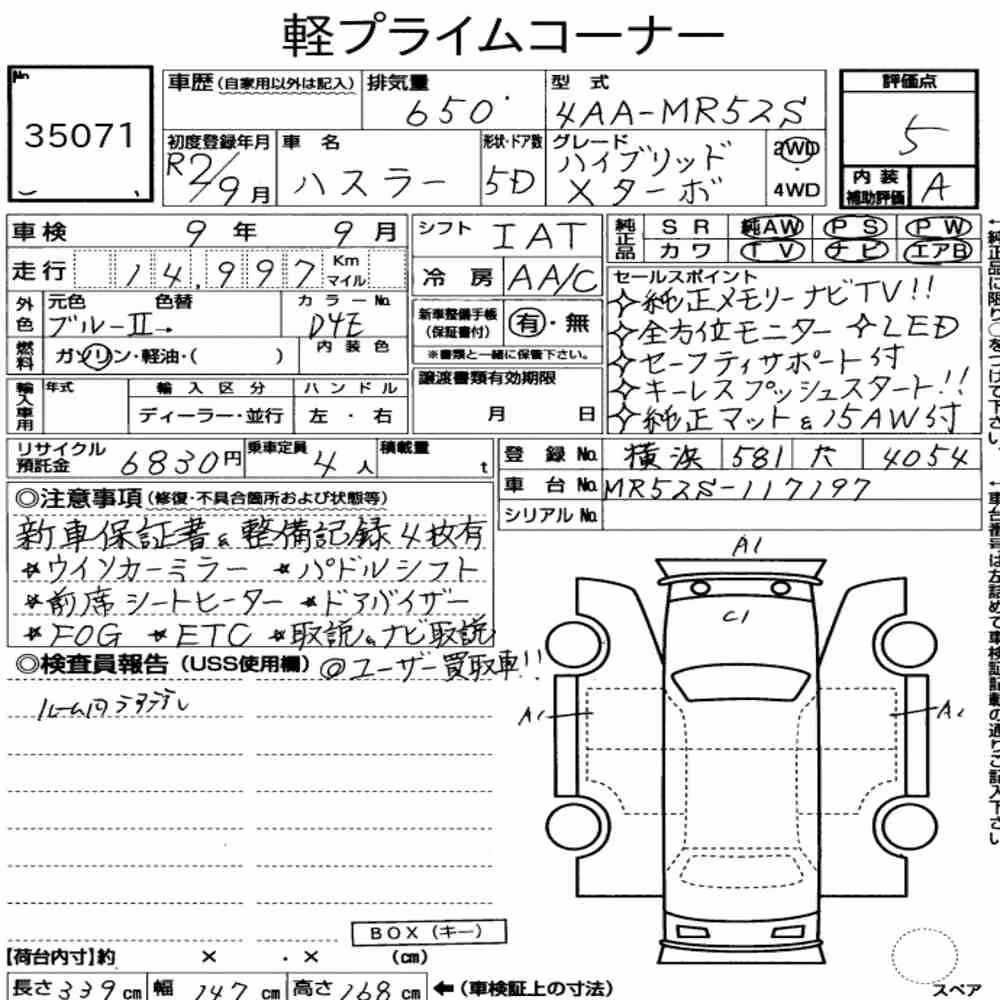 軽プライムコーナー
No.
35071
車歴(自家用以外は記入)
排気量
650
型 式
4AA-MR52S
評価点
5
初度登録年月
R2/9月
車 名
ハスラー
形状・ドア数
5D
グレード
ハイブリッド
Xターボ
2WD
・
4WD
内装補助評価
A
車検 9年 9月
シフト IAT
純正品
SR 純AW PS PW
カワ TV ナビ エアB
走行 14,997 Km マイル
冷房 AA/C
セールスポイント
純正メモリーナビTV!!
全方位モニター ☆LED
セーフティサポート付
キーレスプッシュスタート!!
純正マット&15AW付
外色
元色 色替
ブルーII→
カラーNo.
D4E
新車整備手帳
(保証書付)
有・無
※書類と一緒に保管下さい。
燃料
ガソリン・軽油・( )
内装色
輸入車用
年式
輸入区分
ディーラー・並行
ハンドル
左・右
譲渡書類有効期限
月 日
リサイクル預託金
6830円
乗車定員
4人
積載量
t
登録No. 横浜 581 た 4054
車台No. MR52S-117197
シリアルNo.
◎注意事項(修復・不具合箇所および状態等)
新車保証書&整備記録4枚有
★ウインカーミラー ★パドルシフト
★前席シートヒーター ★ドアバイザー
★FOG ★ETC ★取説&ナビ取説
◎検査員報告(USS使用欄)
@ユーザー買取車!!
ルーム内
A1
C1
A1
A1
BOX(キー)
【荷台内寸】約 × ・ × (cm)
長さ339cm 幅147cm 高さ168cm ←(車検証上の寸法)
スペア
←純正品に限り○をつけて下さい。
←車台番号は左詰めで車検証記載の通りご記入下さい